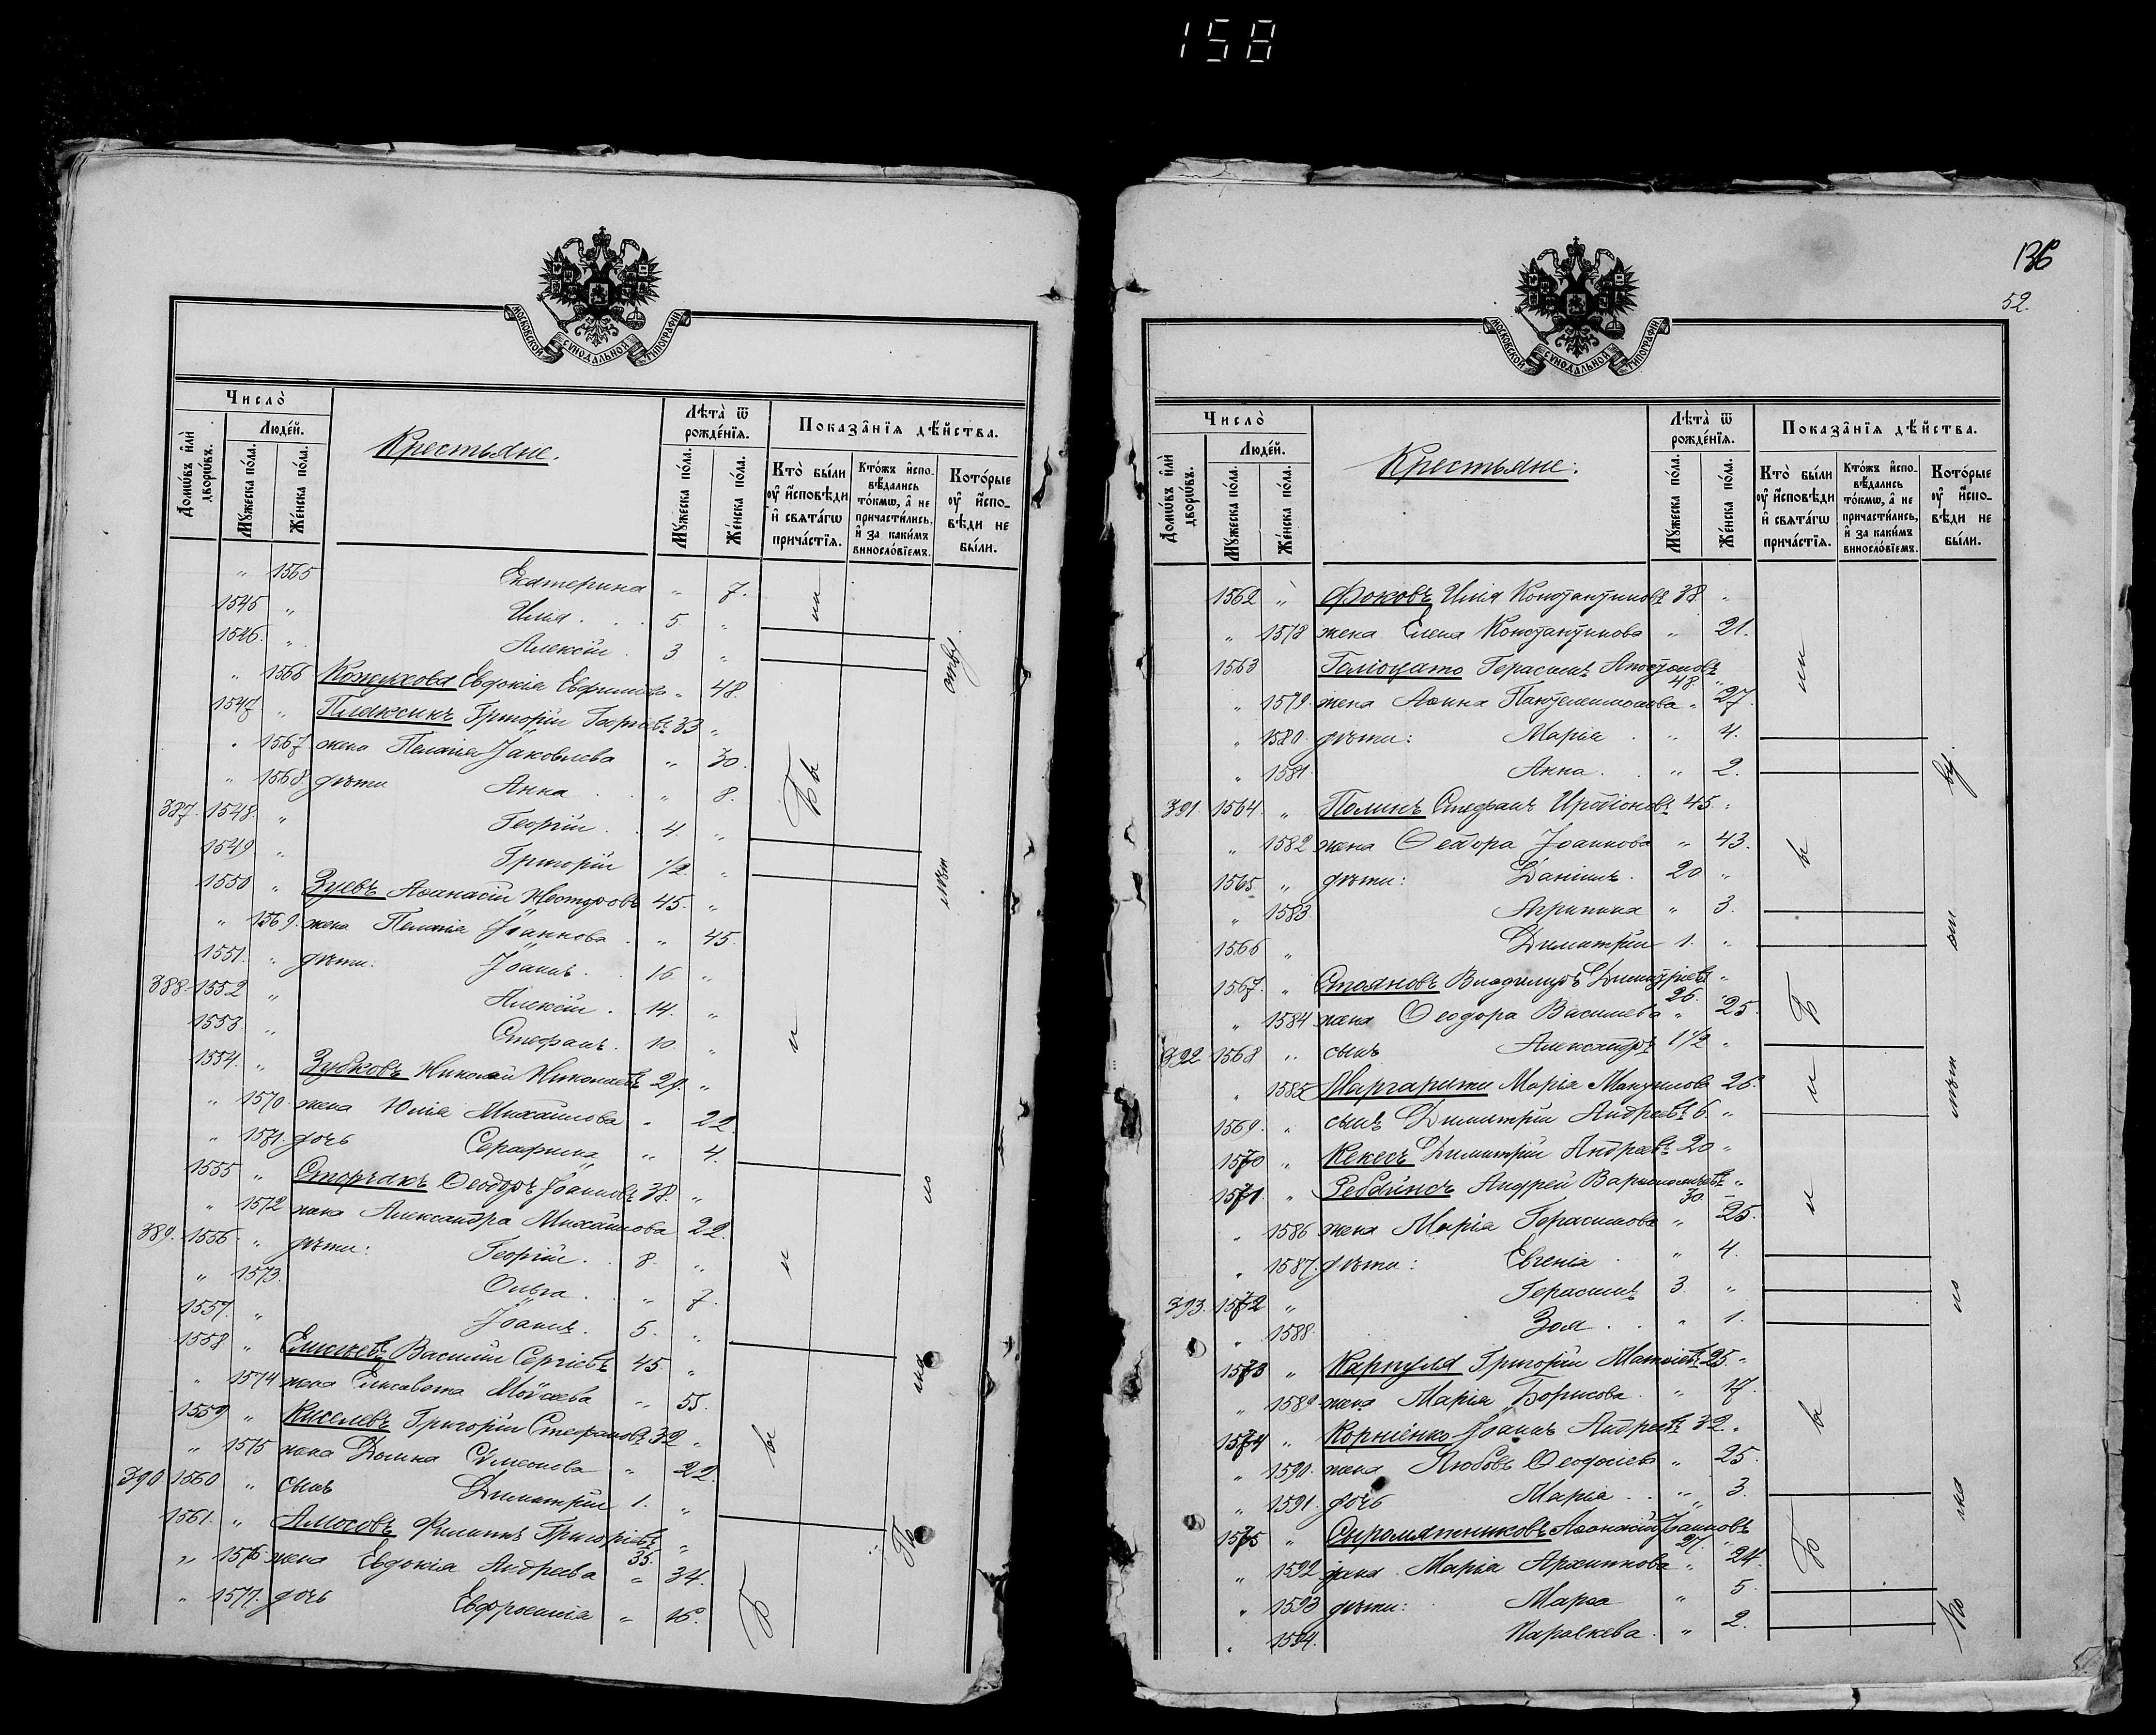 158
МОСКОВСКОЙ СѴНОДАЛЬНОЙ ТИПОГРАФІИ
Число̀
Домѡ́въ и҆лѝ дворѡ́въ.
Люде́й.
Мꙋ́жеска по́ла.
Же́нска по́ла.
Крестьяне.
Лѣта̀ ѿ рожде́нїѧ.
Мꙋ́жеска по́ла.
Же́нска по́ла.
Показа̑нїѧ дѣ́йства.
Кто̀ бы́ли ᲂу҆ и҆сповѣ́ди и҆ свѧта́гѡ прича́стїѧ.
Кто́жъ и҆спо-вѣ́дались то́кмѡ, а҆ не причасти́лись, и҆ за каки́мъ виносло́вїемъ.
Кото́рые ᲂу҆ и҆спо-вѣ́ди не бы́ли.
" 1565 Екатерина " 7.
1545 " Илія . . 5 "
1546. " Алексій . 3 "
" 1566 Кожухова Евдокія Евфимова " 48.
1547 " Плаксинъ Григорій Георгіевъ 33 "
" 1567 жена Пелагія Іаковлева " 30.
" 1568. дѣти Анна . " 8.
387. 1548. " Георгій . 4. "
1549 " Григорій 1/2 "
1550 " Зуевъ Аѳанасій Несторовъ 45. "
" 1569. жена Пелагія Іоаннова . " 45.
1551. " дѣти: Іоаннъ . . 16 "
388. 1552 " Алексій . 14. "
1553. " Стефанъ . 10. "
1554. " Зубковъ Николай Николаевъ 29. "
" 1570. жена Юлія Михаилова " 22.
" 1571. дочь Серафима " 4.
1555 " Сторчакъ Ѳеодоръ Іоанновъ 38. "
" 1572 жена Александра Михаилова 22.
389. 1556 " дѣти: Георгій . . 8. "
" 1573. Ольга . . " 7.
1557. " Іоаннъ . 5. "
1558 " Елисеевъ Василій Сергіевъ 45. "
" 1574 жена Елисавета Моѵсеева " 55.
1559 " Киселевъ Григорій Стефановъ 32 "
" 1575 жена Домна Сѵмеонова " 22.
390 1560 " сынъ Димитрій 1. "
1561. " Амосовъ Филиппъ Григоріевъ 35. "
" 1576 жена Евдокія Андреева " 34.
" 1577. дочь Евфросинія " 16.
Бы и и и ы Б
По мало нѣт ству.
136
52.
МОСКОВСКОЙ СѴНОДАЛЬНОЙ ТИПОГРАФІИ
Число̀
Домѡ́въ и҆лѝ дворѡ́въ.
Люде́й.
Мꙋ́жеска по́ла.
Же́нска по́ла.
Крестьяне.
Лѣта̀ ѿ рожде́нїѧ.
Мꙋ́жеска по́ла.
Же́нска по́ла.
Показа̑нїѧ дѣ́йства.
Кто̀ бы́ли ᲂу҆ и҆сповѣ́ди и҆ свѧта́гѡ прича́стїѧ.
Кто́жъ и҆спо-вѣ́дались то́кмѡ, а҆ не причасти́лись, и҆ за каки́мъ виносло́вїемъ.
Кото́рые ᲂу҆ и҆спо-вѣ́ди не бы́ли.
1562 " Фоковъ Илія Константиновъ 38. "
" 1578 жена Елена Константинова " 21.
1563 Герасимъ 48. "
" 1579 жена Пантелеимонова " 27.
" 1580. дѣти: Марія . " 4.
" 1581. Анна . . " 2.
391. 1564. " Полинъ Стефанъ Иродіоновъ 45. "
" 1582 жена Ѳеодора Іоаннова " 43.
1565 " дѣти: Даніилъ . 20 "
" 1583 Агрипина " 3.
1566 " Димитрій 1. "
1567. " Стояновъ Владиміръ Димитріевъ 26. "
" 1584 жена Ѳеодора Василіева " 25.
392 1568 " сынъ Александръ 1 1/2 "
" 1585 Маргарити Марія 26.
1569. " сынъ Димитрій Андреевъ 6 "
1570 " Кекесъ Димитрій Андреевъ 20 "
1571. " Андрей 30. "
" 1586 жена Марія Герасимова " 25.
" 1587. дѣти: Евгенія . " 4.
393. 1572 " Герасимъ 3. "
" 1588 Зоя . . " 1.
1573 " Карпуля Григорій Матѳіевъ 25. "
" 1589 жена Марія Борисова . " 17.
1574 " Корніенко Іоаннъ Андреевъ 32. "
" 1590. жена Любовь Ѳеодосіева " 25.
" 1591. дочь Марія . . " 3.
1575 " Сыромятниковъ Аѳанасій Іоанновъ 27. "
" 1592 жена Марія Архиппова " 24.
" 1593 дѣти: Марѳа " 5.
" 1594. Параскева . " 2.
и ы Б и и ы Б
По